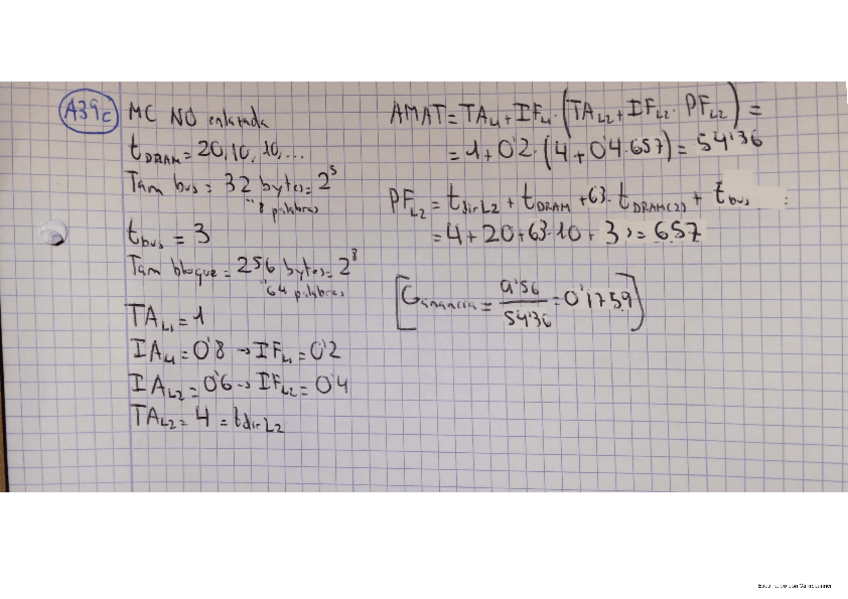 A39c
MC NO enlatada
tDRAM = 20, 10, 10, ...
Tam bus = 32 bytes = 2^5
" 8 palabras
tbus = 3
Tam bloque = 256 bytes = 2^8
" 64 palabras
TAL1 = 1
IAL1 = 0'8 → IFL1 = 0'2
IAL2 = 0'6 → IFL2 = 0'4
TAL2 = 4 = tdirL2
AMAT = TAL1 + IFL1 · (TAL2 + IFL2 · PFL2) =
= 1 + 0'2 · (4 + 0'4 · 657) = 54'36
PFL2 = tdirL2 + tDRAM + 63 · tDRAM(2) + tbus
= 4 + 20 + 63 · 10 + 3 = 657
[Ganancia = 9'56 / 54'36 = 0'1759]